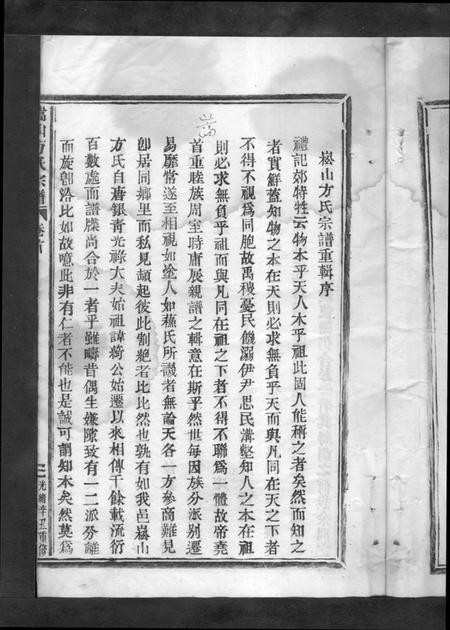 崧山方氏宗譜重輯序
禮記郊特牲云物本乎天人本乎祖此固人能稱之者矣然而知之
者實鮮蓋知物之本在天則必求無負乎天而與凡同在天之下者
不得不視為同胞故禹稷憂民饑溺伊尹思民溝壑知人之本在祖
則必求無負乎祖而與凡同在祖之下者不得不聯為一體故帝堯
首重睦族周室時庸展親譜之輯意在斯乎然世每因族分派別遷
易靡常遂至相視如塗人如蘇氏所譏者無論天各一方參商難見
卽居同鄉里而私見頓起彼此割絕者比比然也孰有如我邑崧山
方氏自唐銀青光祿大夫始祖諱綺公始遷以來相傳千餘載流衍
百數處而譜牒尚合於一者乎雖疇昔偶生嫌隙致有一二派分離
而旋卽洛比如故噫此非有仁者不能也是誠可謂知本矣然莫為
嵩
嵩山方氏宗譜 卷首
一 光緒辛丑重修